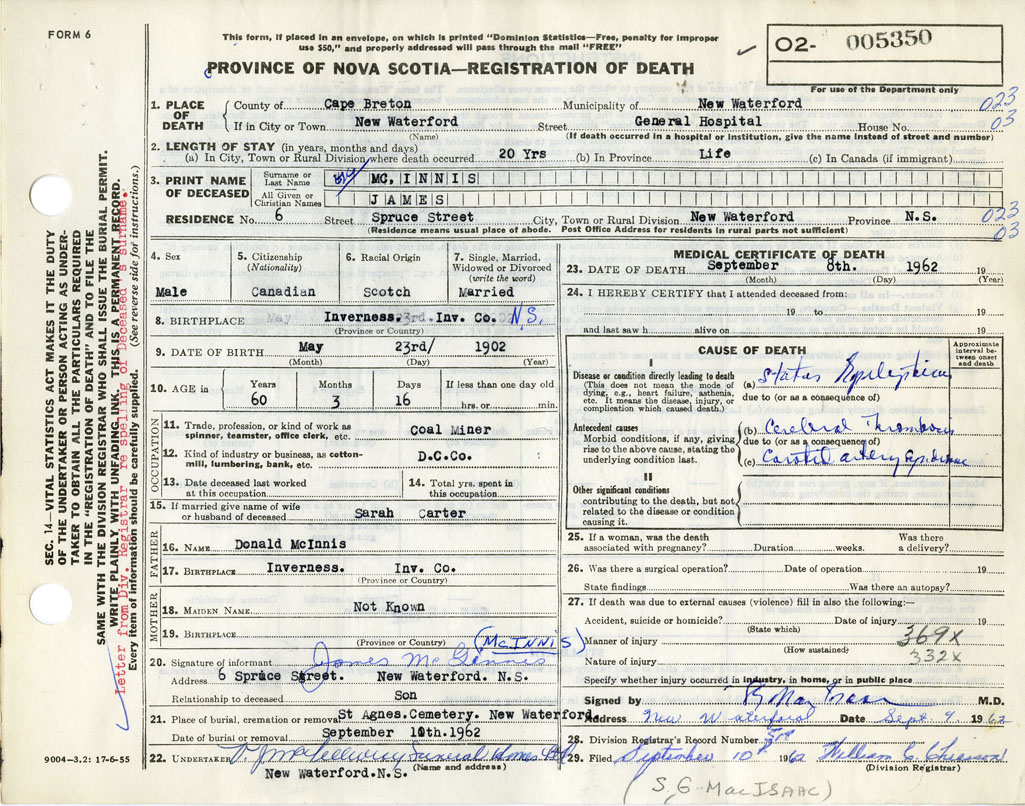 FORM 6
This form, if placed in an envelope, on which is printed "Dominion Statistics—Free, penalty for improper
use $50," and properly addressed will pass through the mail "FREE"
PROVINCE OF NOVA SCOTIA—REGISTRATION OF DEATH
02- 005350
For use of the Department only
1. PLACE OF DEATH { County of Cape Breton Municipality of New Waterford 023
If in City or Town New Waterford Street General Hospital House No. 03
(Name) (If death occurred in a hospital or institution, give the name instead of street and number)
2. LENGTH OF STAY (in years, months and days)
(a) In City, Town or Rural Division where death occurred 20 Yrs (b) In Province Life (c) In Canada (if immigrant)
3. PRINT NAME OF DECEASED
Surname or Last Name MC. INNIS
All Given or Christian Names JAMES
RESIDENCE No. 6 Street Spruce Street City, Town or Rural Division New Waterford Province N.S. 023
03
(Residence means usual place of abode. Post Office Address for residents in rural parts not sufficient)
4. Sex
Male
5. Citizenship
(Nationality)
Canadian
6. Racial Origin
Scotch
7. Single, Married,
Widowed or Divorced
(write the word)
Married
8. BIRTHPLACE Inverness. Inv. Co. N.S.
(Province or Country)
9. DATE OF BIRTH May 23rd/ 1902
(Month) (Day) (Year)
10. AGE in Years Months Days If less than one day old
60 3 16 hrs. or min.
OCCUPATION
11. Trade, profession, or kind of work as
spinner, teamster, office clerk, etc. Coal Miner
12. Kind of industry or business, as cotton-
mill, lumbering, bank, etc. D.C.Co.
13. Date deceased last worked
at this occupation
14. Total yrs. spent in
this occupation
15. If married give name of wife
or husband of deceased Sarah Carter
FATHER
16. NAME Donald McInnis
17. BIRTHPLACE Inverness. Inv. Co.
(Province or Country)
MOTHER
18. MAIDEN NAME Not Known
19. BIRTHPLACE
(Province or Country) (McINNIS)
20. Signature of informant James McGinnis
Address 6 Spruce Street. New Waterford. N.S.
Relationship to deceased Son
21. Place of burial, cremation or removal St Agnes.Cemetery. New Waterford.
Date of burial or removal September 10th.1962
22. UNDERTAKER Funeral Home
(Name and address)
New Waterford.N.S.
9004—3.2: 17-6-55
MEDICAL CERTIFICATE OF DEATH
23. DATE OF DEATH September 8th. 1962 19
(Month) (Day) (Year)
24. I HEREBY CERTIFY that I attended deceased from:
19 to 19
and last saw h alive on 19
CAUSE OF DEATH
Approximate
interval be-
tween onset
and death
I
Disease or condition directly leading to death
(This does not mean the mode of
dying, e.g., heart failure, asthenia,
etc. It means the disease, injury, or
complication which caused death.)
(a) Status Epilepticus
due to (or as a consequence of)
Antecedent causes
Morbid conditions, if any, giving
rise to the above cause, stating the
underlying condition last.
(b) Cerebral Thrombosis
due to (or as a consequence of)
(c) Carotid artery syndrome
II
Other significant conditions
contributing to the death, but not
related to the disease or condition
causing it.
25. If a woman, was the death
associated with pregnancy? Duration weeks. Was there
a delivery?
26. Was there a surgical operation? Date of operation 19
State findings Was there an autopsy?
27. If death was due to external causes (violence) fill in also the following:—
Accident, suicide or homicide? Date of injury 19
(State which)
Manner of injury 369X
(How sustained)
Nature of injury 332X
Specify whether injury occurred in industry, in home, or in public place
Signed by M.D.
Address New Waterford Date Sept 9 1962
28. Division Registrar's Record Number
29. Filed September 10 1962 William C. Chiasson
(Division Registrar)
(S. G. MacISAAC)
SEC. 14—VITAL STATISTICS ACT MAKES IT THE DUTY
OF THE UNDERTAKER OR PERSON ACTING AS UNDER-
TAKER TO OBTAIN ALL THE PARTICULARS REQUIRED
IN THE "REGISTRATION OF DEATH" AND TO FILE THE
SAME WITH THE DIVISION REGISTRAR WHO SHALL ISSUE THE BURIAL PERMIT.
WRITE PLAINLY WITH UNFADING INK. THIS IS A PERMANENT RECORD.
Letter from Div. Registrar re spelling of Deceased's surname.
Every item of information should be carefully supplied. (See reverse side for instructions.)